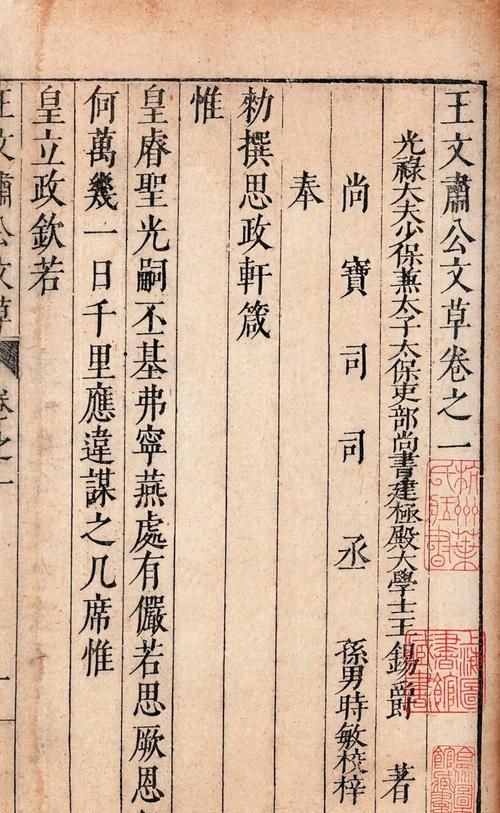 王文肅公文草卷之一
光祿大夫少保兼太子太保吏部尚書建極殿大學士王錫爵 著
尚寶司司丞 孫男時敏校梓
奉
勑撰思政軒箴
惟
皇睿聖光嗣丕基弗寧燕處有儼若思厥恩
何萬幾一日千里應違謀之几席惟
皇立政欽若
王文肅公文草 卷之一
上海圖書館藏書